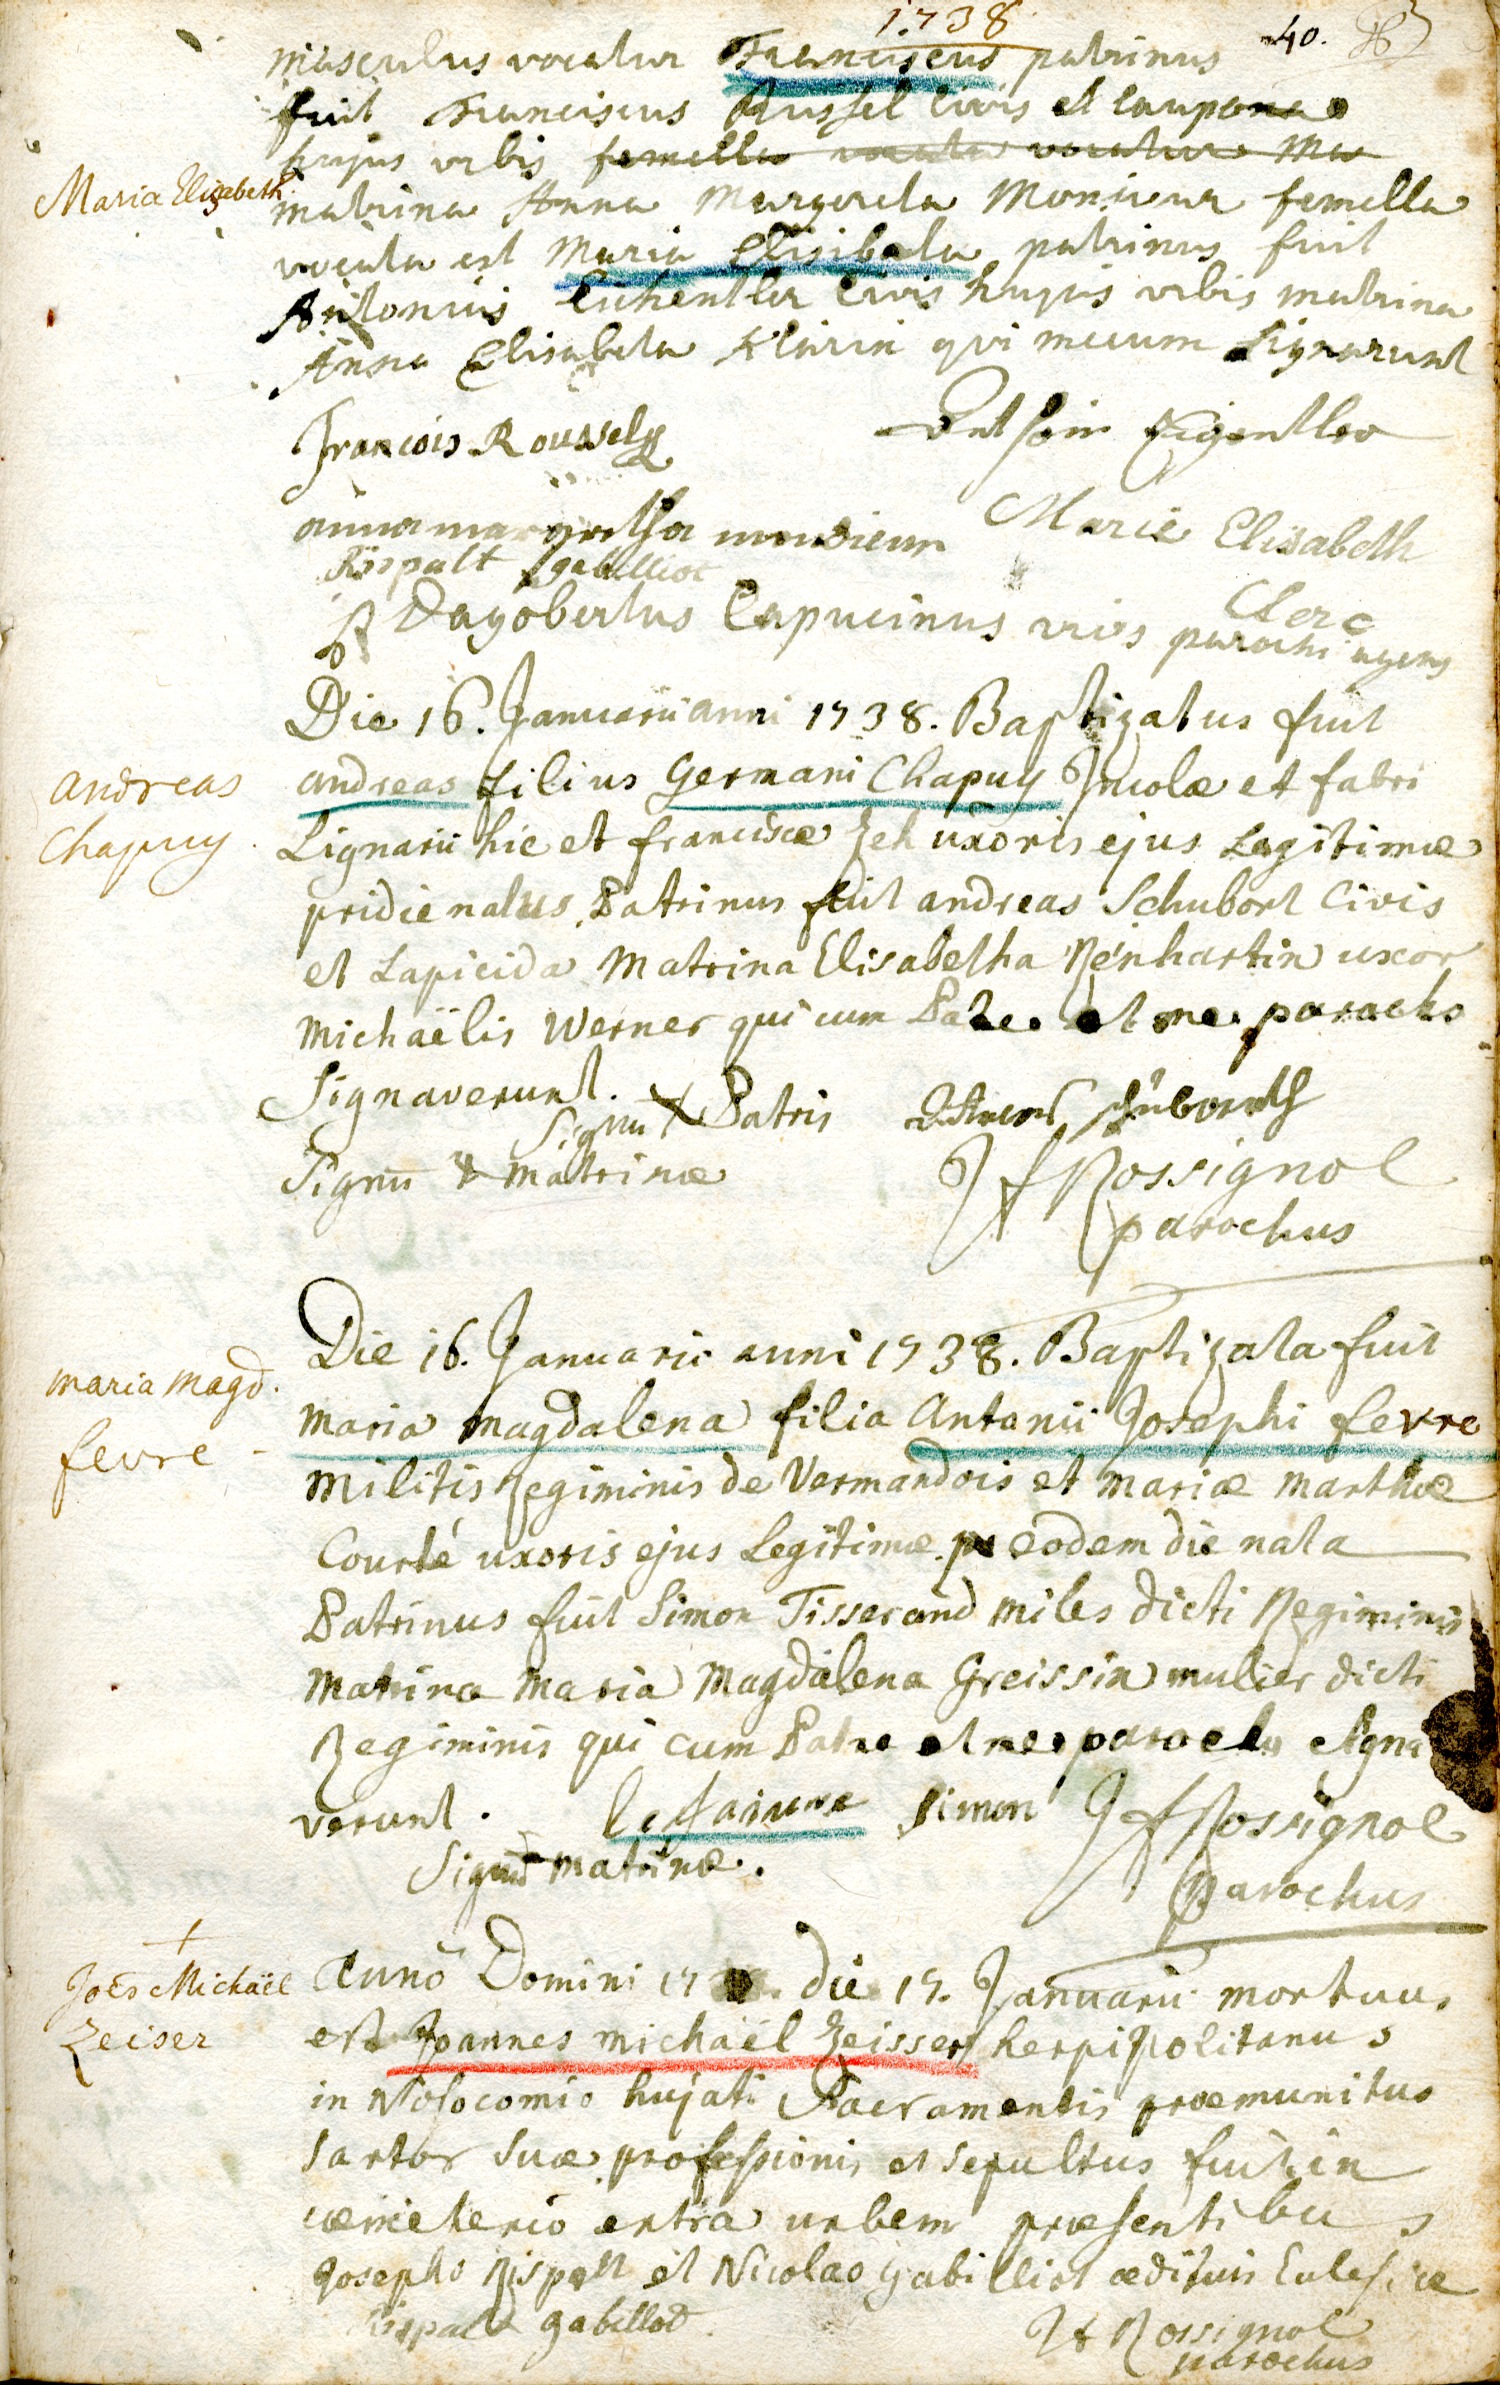 1738
40.
masculus vocatur Franciscus patrinus
fuit Franciscus Russel civis et caupona
hujus urbis femella vocata vocatur Ma
Maria Elisabeth.
matrina Anna Margareta Monsieur femella
vocata est Maria Elisibeta patrinus fuit
Antonius Eichentler civis hujus urbis matrina
Anna Elisabeta Klairin qui mecum signarunt
François Roussel
Eigentler
anna margretha mondieur Marie Elisabeth
Rispalt gabilliot
Clerc
P Dagobertus Capucinus vices parochi agens
Die 16. Januarii anni 1738. Baptizatus fuit
andreas Chapuy.
andreas filius Germani Chapuy Incolæ et fabri
Lignarii hic et franciscæ Zeh uxoris ejus Legitimæ
pridie natus. Patrinus fuit andreas Schubort Civis
et Lapicida Matrina Elisabetha Reinhartin uxor
Michaëlis Werner qui cum Patre et me parocho
Signaverunt.
Signu Patris
schüborth
Signu matrinæ
JfRossignol
parochus
Die 16. Januarii anni 1738. Baptizata fuit
maria Magd.
fevre
maria magdalena filia Antonii Josephi fevre
Militis Regiminis de Vermandois et Mariæ Marthæ
Courté uxoris ejus Legitimæ. eodem die nata
Patrinus fuit Simon Tisserand miles dicti Regiminis
Matrina Maria Magdalena Greissin mulier dicti
Regiminis qui cum Patre et me parocho signa
verunt. simon JfRossignol
Signu matrinæ.
parochus
Joēs Michaël
Zeiser
Anno Domini 17 die 17. Januarii mortuus
est Joannes Michaël Zeisser herpipolitanus
in Nosocomio hujati Sacramentis præmunitus
sartor suæ professionis et sepultus fuit in
cœmeterio extra urbem præsentibus
Josepho Rispalt et Nicolao gabilliot ædituis Eclesiæ
Rispalt gabillod.
Jf Rossignol
parochus